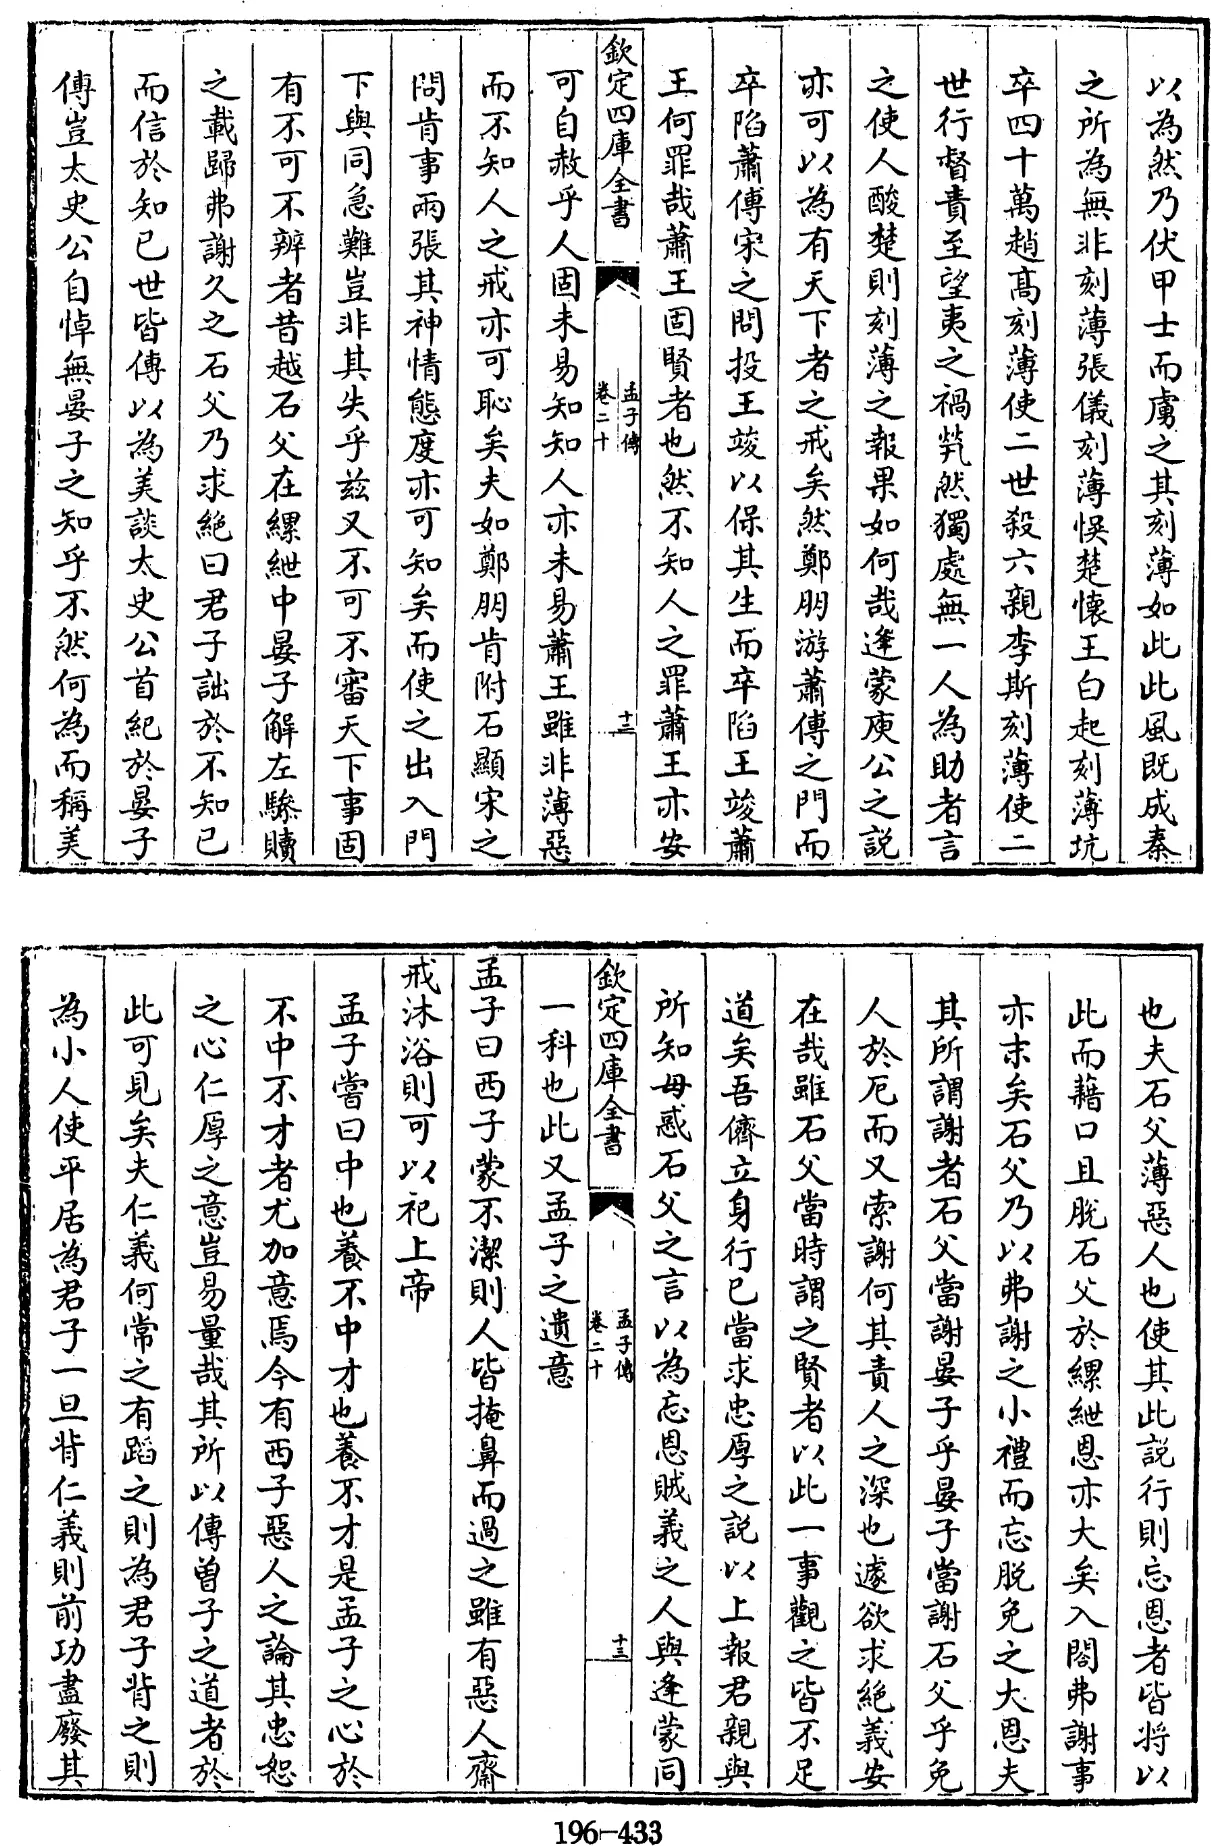 以為然乃伏甲士而虜之其刻薄如此此風既成秦
之所為無非刻薄張儀刻薄悞楚懷王白起刻薄坑
卒四十萬趙髙刻薄使二世殺六親李斯刻薄使二
世行督責至望夷之禍煢然獨處無一人為助者言
之使人酸楚則刻薄之報果如何哉逢蒙庾公之説
亦可以為有天下者之戒矣然鄭朋游蕭傅之門而
卒陷蕭傅宋之問投王竣以保其生而卒陷王竣蕭
王何罪哉蕭王固賢者也然不知人之罪蕭王亦安
欽定四庫全書
孟子傳
卷二十
十三
可自赦乎人固未易知知人亦未易蕭王雖非薄惡
而不知人之戒亦可恥矣夫如鄭朋肯附石顯宋之
問肯事兩張其神情態度亦可知矣而使之出入門
下與同急難豈非其失乎兹又不可不審天下事固
有不可不辨者昔越石父在縲紲中晏子解左驂贖
之載歸弗謝久之石父乃求絶曰君子詘於不知已
而信於知已世皆傳以為美談太史公首紀於晏子
傳豈太史公自悼無晏子之知乎不然何為而稱美
也夫石父薄惡人也使其此説行則忘恩者皆將以
此而藉口且脱石父於縲紲恩亦大矣入閤弗謝事
亦末矣石父乃以弗謝之小禮而忘脱免之大恩夫
其所謂謝者石父當謝晏子乎晏子當謝石父乎免
人於厄而又索謝何其責人之深也遽欲求絶義安
在哉雖石父當時謂之賢者以此一事觀之皆不足
道矣吾儕立身行已當求忠厚之説以上報君親與
所知毋惑石父之言以為忘恩賊義之人與逢蒙同
欽定四庫全書
孟子傳
卷二十
十三
一科也此又孟子之遺意
孟子曰西子蒙不潔則人皆掩鼻而過之雖有惡人齋
戒沐浴則可以祀上帝
孟子嘗曰中也養不中才也養不才是孟子之心於
不中不才者尤加意焉今有西子惡人之論其忠恕
之心仁厚之意豈易量哉其所以傳曽子之道者於
此可見矣夫仁義何常之有蹈之則為君子背之則
為小人使平居為君子一旦背仁義則前功盡廢其
196-433